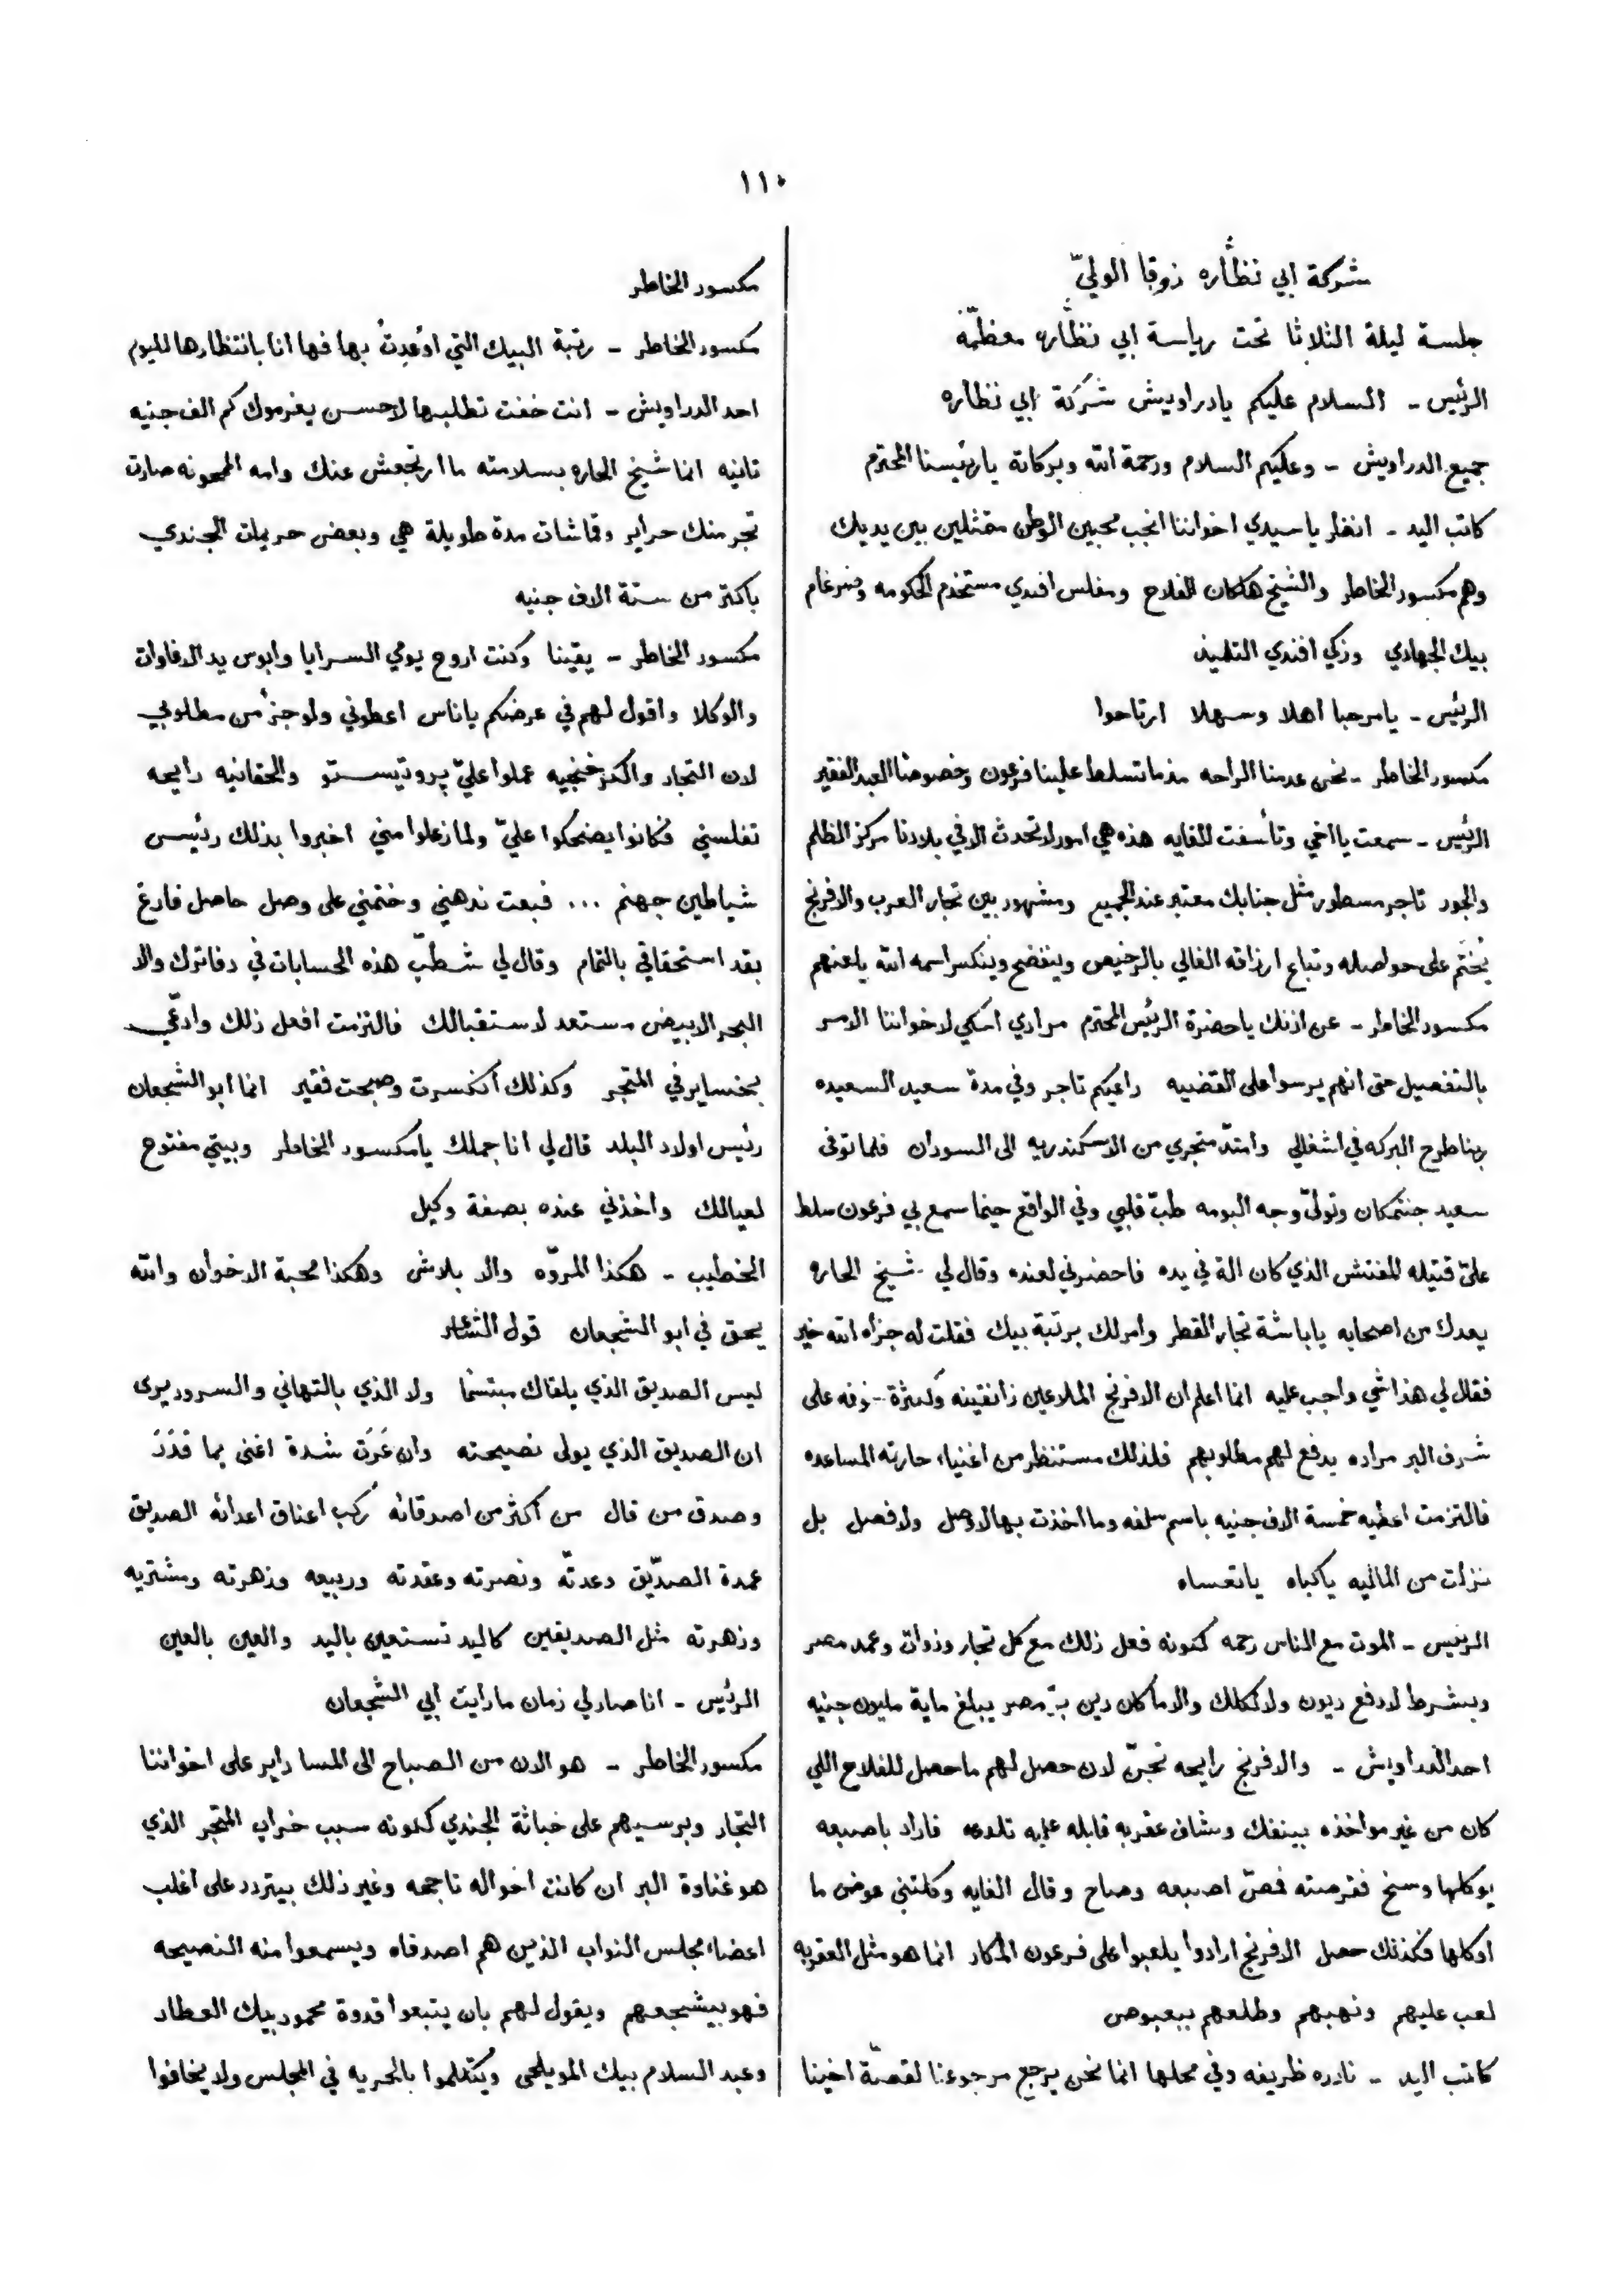 ١١٠
شركة ابي نظّاره زوقا الوليّ
جلسة ليلة الثلاثا تحت رياسة ابي نظّاره معظمّه
الرئيس - السلام عليكم يا دراويش شركة ابي نظاره
جميع الدراويش - وعليكم السلام ورحمة الله وبركاته يا رئيسنا المحترم
كاتب اليد - انظر يا سيدي اخواننا انجب محبين الوطن متمثلين بين يديك
وهم مكسور الخاطر والشيخ هلكان الفلاح ومفلس افندي مستخدم الحكومه وضرغام
بيك الجهادي وزكي افندي التلميذ
الرئيس - يا مرحبا اهلا وسهلا ارتاحوا
مكسور الخاطر - نحن عدمنا الراحه مذما تسلط علينا فرعون وخصوصا العبد الفقير
الرئيس - سمعت يا اخي وتأسفت للغايه هذه هي امور لا تحدث الا في بلادنا مركز الظلم
والجور تاجر مسطور مثل جنابك معتبر عند الجميع ومشهور بين تجار العرب والافرنج
يُختَم على حواصله وتباع ارزاقه الغالي بالرخيص وينفضح وينكسر اسمه الله يلعنهم
مكسور الخاطر - عن اذنك يا حضرة الرئيس المحترم مرادي احكي لاخواننا الامر
بالتفصيل حتى انهم يرسوا على القضيه داعيكم تاجر وفي مدة سعيد السعيده
ربنا طرح البركه في اشغالي وامتدّ متجري من الاسكندريه الى السودان فلما توفى
سعيد جنتمكان وتولّى وجه البومه طبّ قلبي وفي الواقع حينما سمع بي فرعون سلط
عليّ قتيله المفتش الذي كان الة في يده فاحضرني لعنده وقال لي شيخ الحاره
يعدك من اصحابه يا باشة تجار القطر وامر لك برتبة بيك فقلت له جزاه الله خير
فقال لي هذا شي واجب عليه انما اعلم ان الافرنج الملاعين زانقينه وكثرة خوفه على
شرف البر مراده يدفع لهم مطلوبهم فلذلك مستنظر من اغنياء حارته المساعده
فالتزمت اعطيه خمسة الاف جنيه باسم سلفه وما اخذت بها لا وصل ولا فصل بل
نزلت من الماليه يا كباه يا تعساه
الرئيس - الموت مع الناس رحمه كونه فعل ذلك مع كل تجار وذوات وعمد مصر
وبشرط لا دفع ديون ولا لكلك والا ما كان دين برّ مصر يبلغ ماية مليون جنيه
احد الدراويش - والافرنج رايحه تجنّ لان حصل لهم ما حصل للفلاح اللي
كان من غير مواخذه بينفك وشاف عقربه قابله عليه تلدعه فاراد باصبعه
يوكلها وسخ فقرصته فمصّ اصبعه وصاح وقال الغايه وكلتني عوض ما
اوكلها فكذلك حصل الافرنج ارادوا يلعبوا على فرعون المكار انما هو مثل العقربه
لعب عليهم ونهبهم وطلعهم ببعبوص
كاتب اليد - نادره ظريفه وفي محلها انما نحن يرجع مرجوعنا لقصّة اخينا
مكسور الخاطر
مكسور الخاطر - رتبة البيك التي اوُعِدتُ بها فها انا بانتظارها لليوم
احد الدراويش - انت خفت تطلبها لاحسن يغرموك كم الف جنيه
تانيه انما شيخ الحاره بسلامته ما ارتجعش عنك وامه المجعونه صارت
تجر منك حراير وقماشات مدة طويلة هي وبعض حريمات الجندي
باكتر من ستة الاف جنيه
مكسور الخاطر - يقينا وكنت اروح يومي السرايا وابوس يد الاغاوات
والوكلا واقول لهم في عرضكم يا ناس اعطوني ولو جزء من مطلوبي
لان التجار والكرخنجيه عملوا عليّ پروتيستو والحقانيه رايحه
تفلسني فكانوا يضحكوا عليّ ولما زعلوا مني اخبروا بذلك رئيس
شياطين جهنم ... فبعت ندهني وختمني على وصل حاصل فارغ
بقد استحقاقي بالتمام وقال لي شطّب هذه الحسابات في دفاترك والا
البحر الابيض مستعد لاستقبالك فالتزمت افعل ذلك وادعّي
بخساير في المتجر وكذلك انكسرت وصبحت فقير انما ابو الشجعان
رئيس اولاد البلد قال لي انا جملك يا مكسور الخاطر وبيتي مفتوح
لعيالك واخذني عنده بصفة وكيل
الخطيب - هكذا المروّه والا بلاش وهكذا محبة الاخوان والله
يحق في ابو الشجعان قول الشاعر
ليس الصديق الذي يلقاك مبتسما ولا الذي بالتهاني والسرور يرى
ان الصديق الذي يولى نصيحته وان عَرَت شدة اغنى بما قَدَرَ
وصدق من قال من اكثر من اصدقائه ركب اعناق اعدائه الصديق
عمدة الصدّيق وعدتّه ونصرته وعقدته وربيعه وزهرته ومشتريه
وزهرته مثل الصديقين كاليد تستعين باليد والعين بالعين
الرئيس - انا صار لي زمان ما رايت ابي الشجعان
مكسور الخاطر - هو الان من الصباح الى المسا داير على اخواننا
التجار وبرسيهم على خباثة الجندي كونه سبب خراب المتجر الذي
هو غناوة البر ان كانت احواله ناجحه وغير ذلك بيتردد على اغلب
اعضاء مجلس النواب الذين هم اصدقاه ويسمعوا منه النصيحه
فهو بيشجعهم ويقول لهم بان يتبعوا قدوة محمود بيك العطار
وعبد السلام بيك المويلحى ويتكلموا بالحريه في المجلس ولا يخافوا